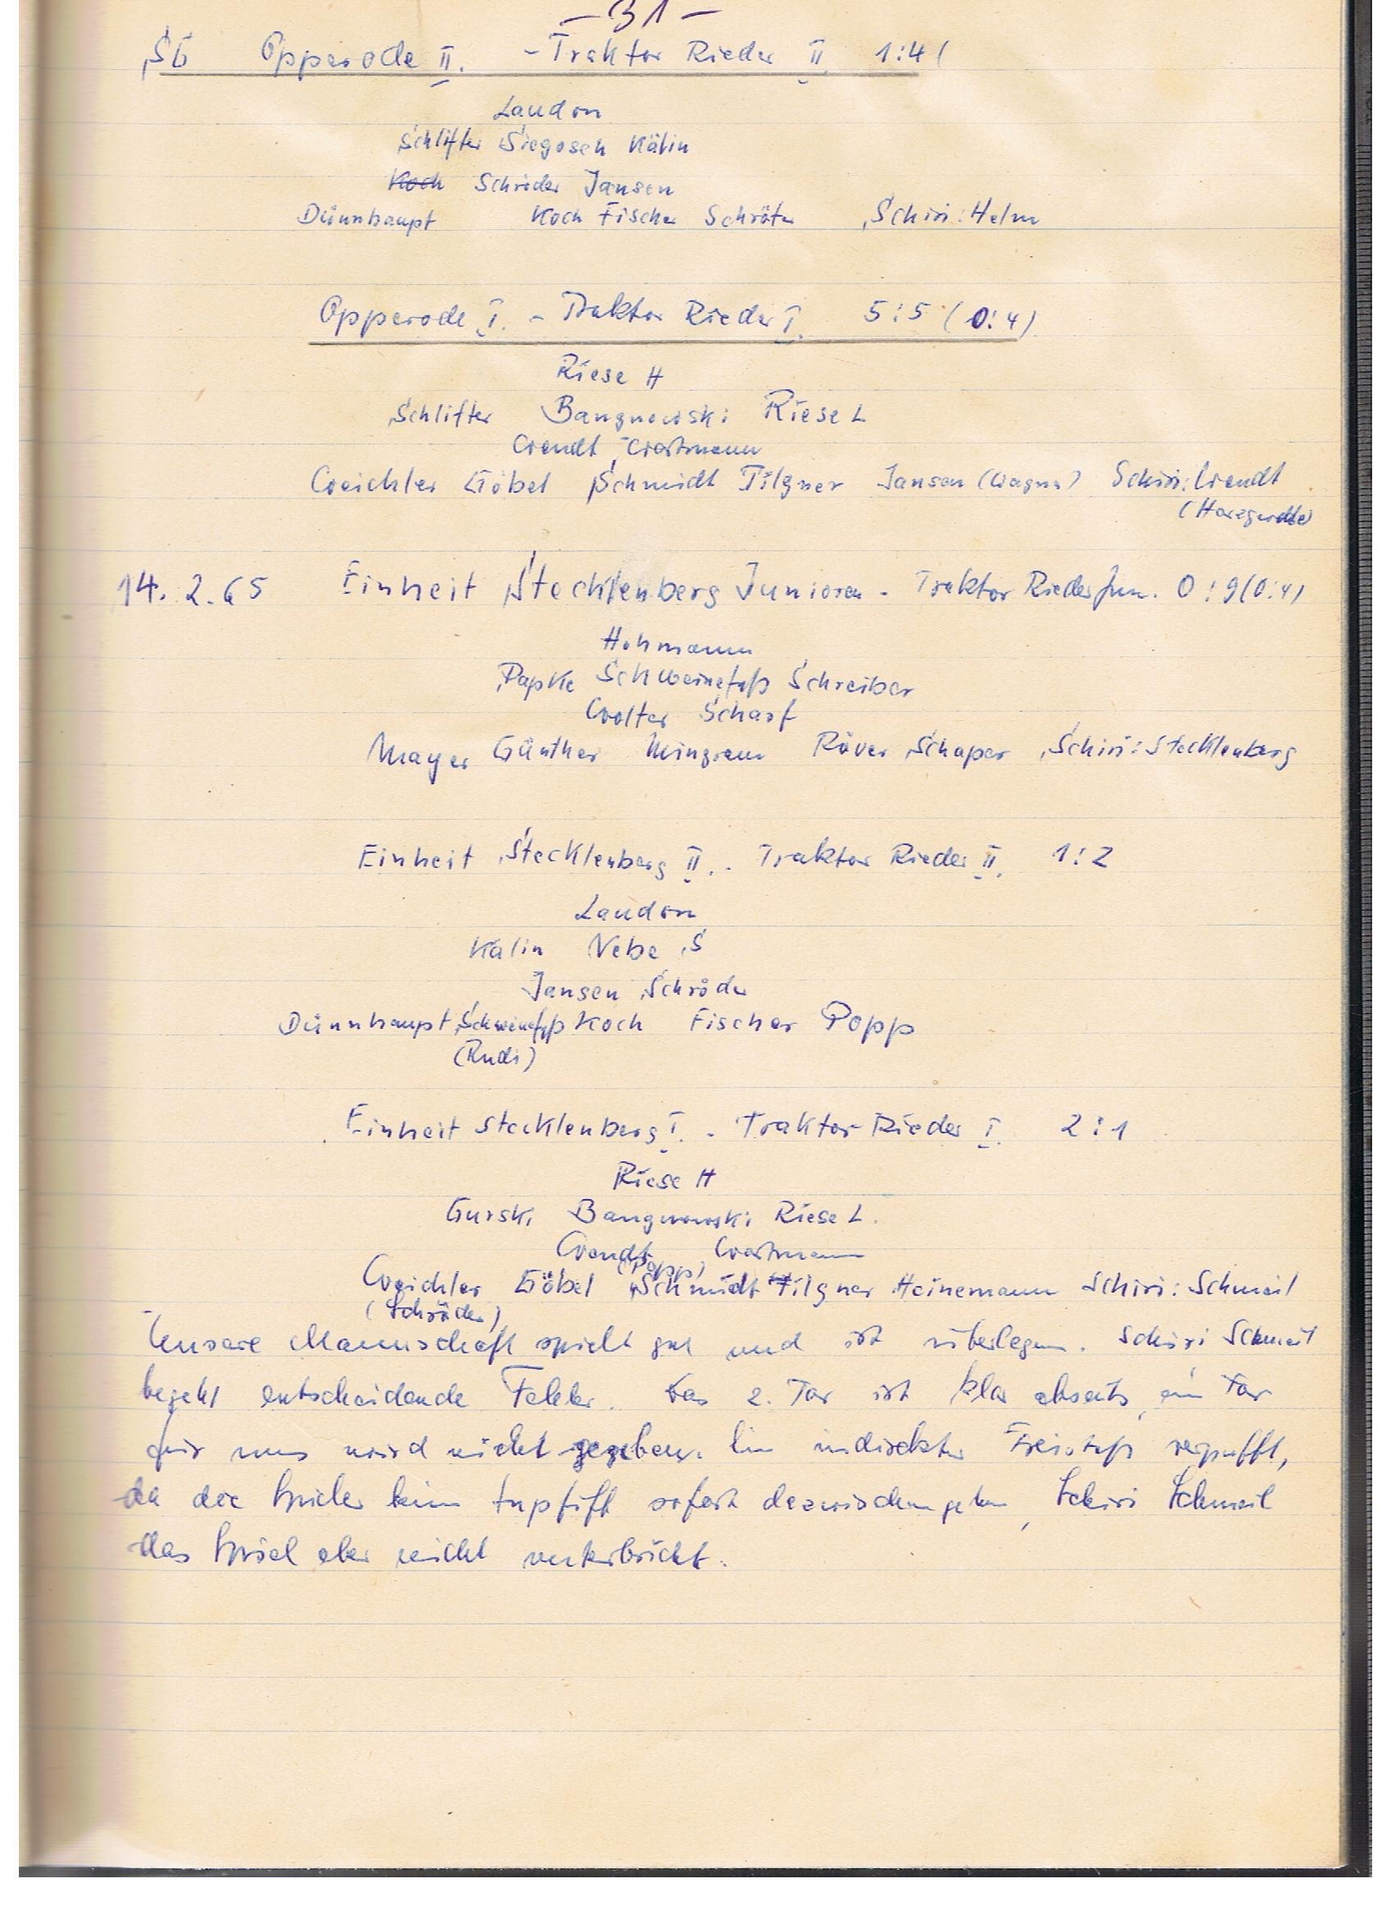 - 31 -
SG Opperode II. - Traktor Rieder II 1:4 (
Laudon
Schlifter Siegosch Kälin
Koch Schröder Jansen
Dünnhaupt Koch Fischer Schröter Schiri: Helm
Opperode I. - Traktor Rieder I. 5:5 (0:4)
Riese H
Schlifter Bangnowski Riese L
Wendt Wortmann
Weichler Göbel Schmidt Tilgner Jansen (Wagner) Schiri: Wendt
(Harzgerode)
14. 2. 65 Einheit Stecklenberg Junioren - Traktor Rieder Jun. 0:9 (0:4)
Hohmann
Papke Schweinefuß Schreiber
Wolter Scharf
Mayer Günther Mingram Röver Schaper Schiri: Stecklenberg
Einheit Stecklenberg II. - Traktor Rieder II. 1:2
Laudon
Kälin Nebe S
Jansen Schröder
Dünnhaupt Schweinefuß Koch Fischer Popp
(Rudi)
Einheit Stecklenberg I. - Traktor Rieder I. 2:1
Riese H
Gurski Bangnowski Riese L.
Wendt Wortmann
(Popp)
Weichler Göbel Schmidt Tilgner Heinemann Schiri: Schmeil
(Schröder)
Unsere Mannschaft spielt gut und ist überlegen. Schiri Schmeil
begeht entscheidende Fehler. Das 2. Tor ist klar abseits, ein Tor
für uns wird nicht gegeben. Ein indirekter Freistoß verpufft,
da die Spieler beim Anpfiff sofort dazwischengehen, Schiri Schmeil
das Spiel aber nicht unterbricht.